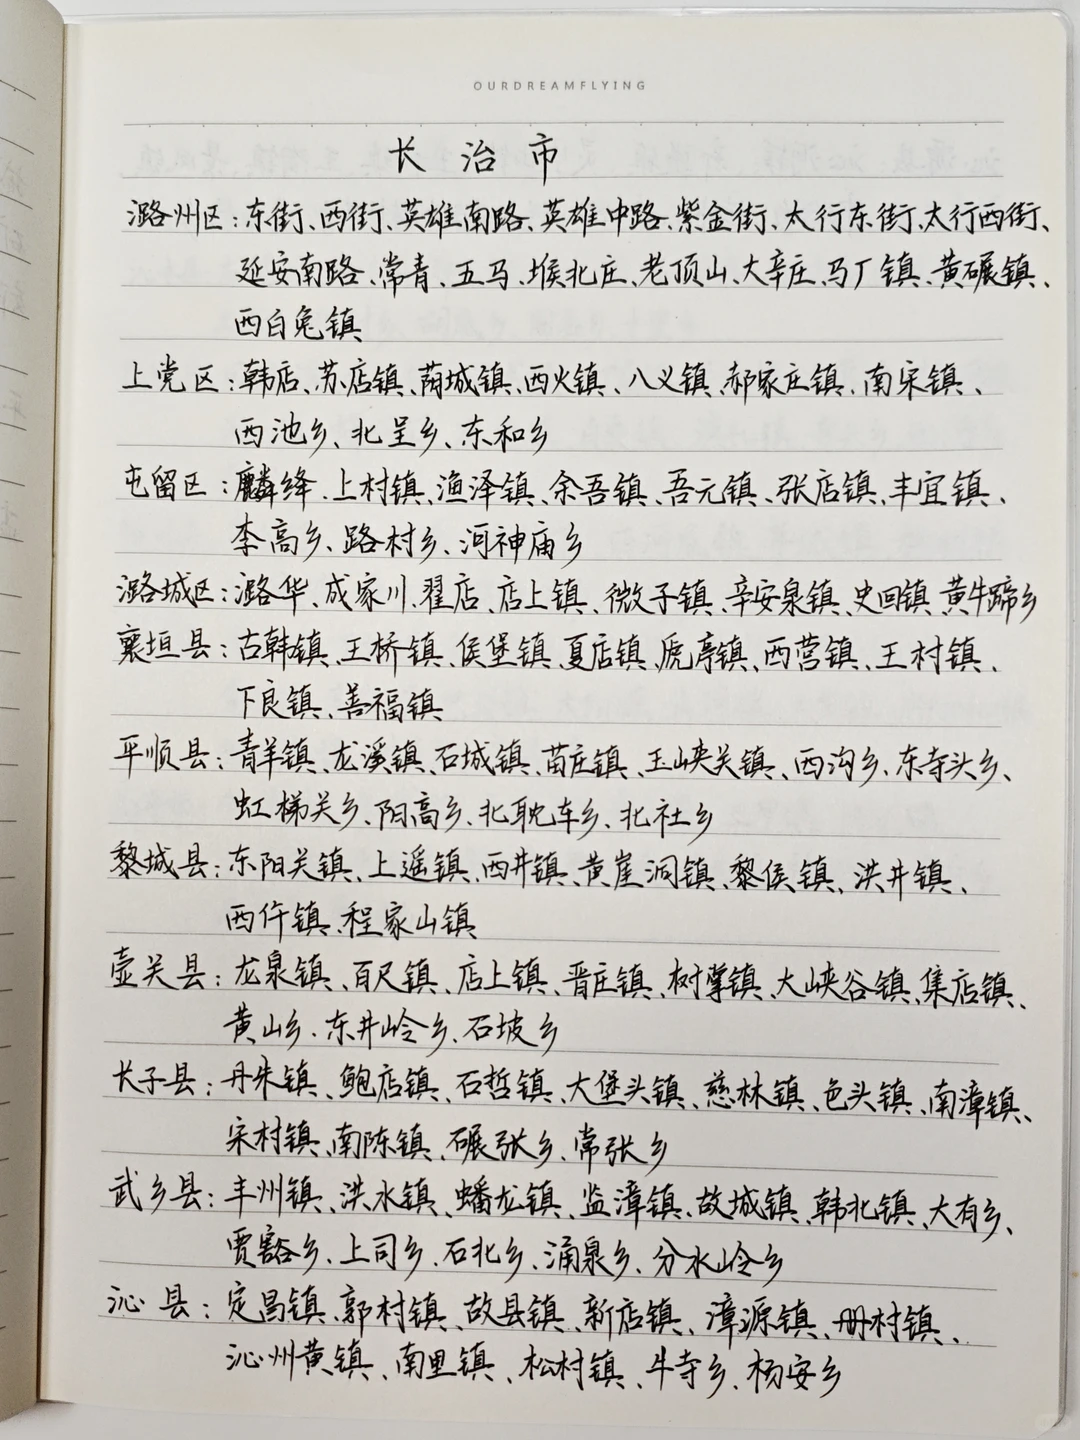 OURDREAMFLYING
长治市
潞州区：东街、西街、英雄南路、英雄中路、紫金街、太行东街、太行西街、
延安南路、常青、五马、堠北庄、老顶山、大辛庄、马厂镇、黄碾镇、
西白兔镇
上党区：韩店、苏店镇、荫城镇、西火镇、八义镇、郝家庄镇、南宋镇、
西池乡、北呈乡、东和乡
屯留区：麟绛、上村镇、渔泽镇、余吾镇、吾元镇、张店镇、丰宜镇、
李高乡、路村乡、河神庙乡
潞城区：潞华、成家川、翟店、店上镇、微子镇、辛安泉镇、史回镇、黄牛蹄乡
襄垣县：古韩镇、王桥镇、侯堡镇、夏店镇、虒亭镇、西营镇、王村镇、
下良镇、善福镇
平顺县：青羊镇、龙溪镇、石城镇、苗庄镇、玉峡关镇、西沟乡、东寺头乡、
虹梯关乡、阳高乡、北耽车乡、北社乡
黎城县：东阳关镇、上遥镇、西井镇、黄崖洞镇、黎侯镇、洪井镇、
西仵镇、程家山镇
壶关县：龙泉镇、百尺镇、店上镇、晋庄镇、树掌镇、大峡谷镇、集店镇、
黄山乡、东井岭乡、石坡乡
长子县：丹朱镇、鲍店镇、石哲镇、大堡头镇、慈林镇、色头镇、南漳镇、
宋村镇、南陈镇、碾张乡、常张乡
武乡县：丰州镇、洪水镇、蟠龙镇、监漳镇、故城镇、韩北镇、大有乡、
贾豁乡、上司乡、石北乡、涌泉乡、分水岭乡
沁县：定昌镇、郭村镇、故县镇、新店镇、漳源镇、册村镇、
沁州黄镇、南里镇、松村镇、牛寺乡、杨安乡